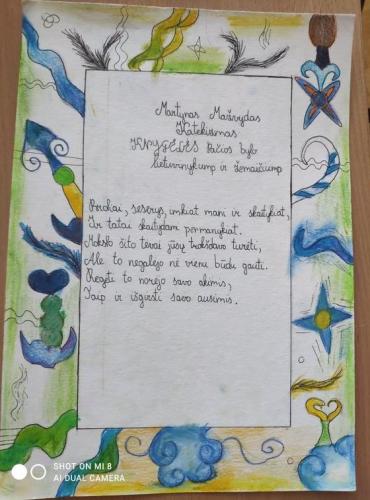 Martynas Mažvydas
Katekizmas
KNYGELĖS Pačios bylo
lietuvnykump ir žemaičiump
Broliai, seserys, imkiat mani ir skaitykiat,
Ir tatai skaitydam permanykiat.
Mokslo šito tėvai jūsų trokšdavo turėti,
Ale to negalėjo nė vienu būdu gauti.
Regėti to norėjo savo akimis,
Taip ir išgirsti savo ausimis.
SHOT ON MI 8
AI DUAL CAMERA